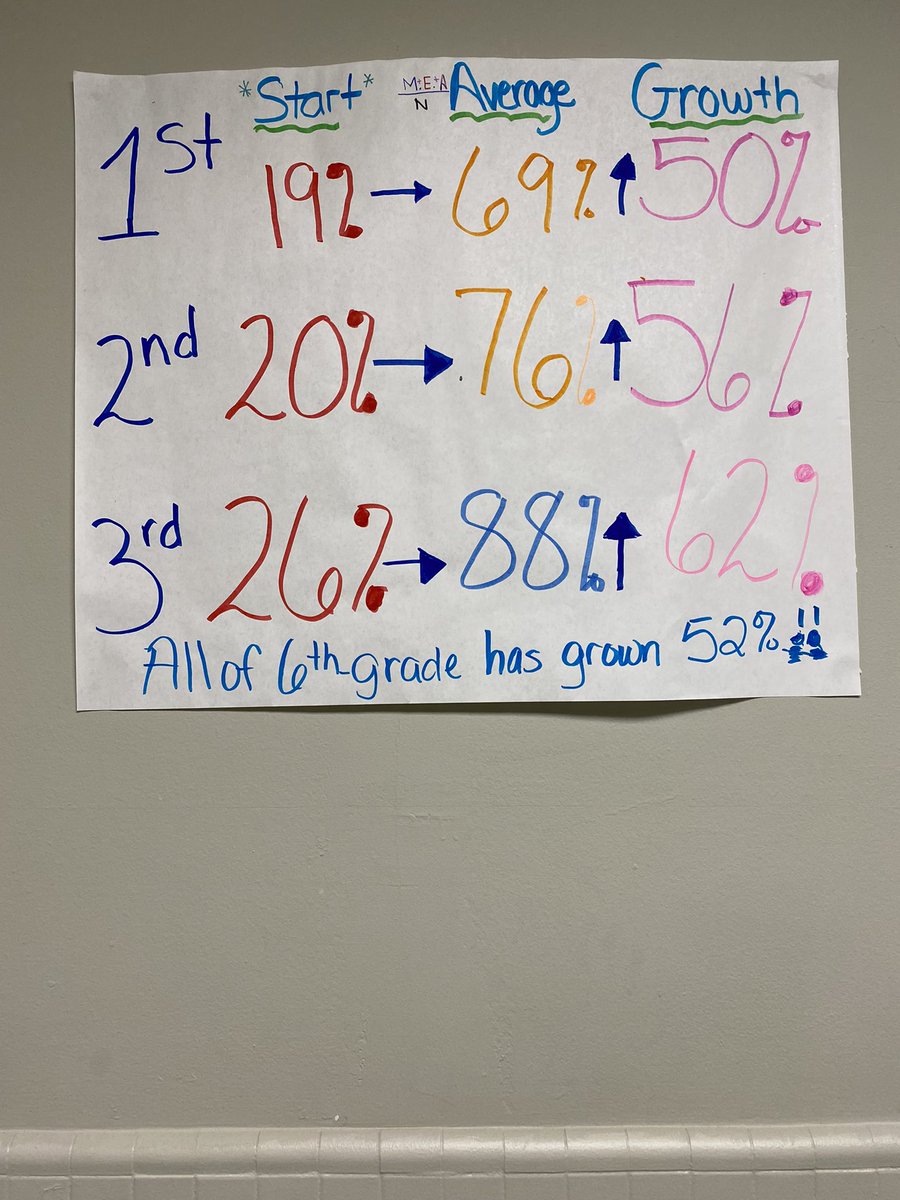 *Start* M+E+A Average Growth
N
1st 19% → 69% ↑ 50%
2nd 20% → 76% ↑ 56%
3rd 26% → 88% ↑ 62%
All of 6th-grade has grown 52%!!